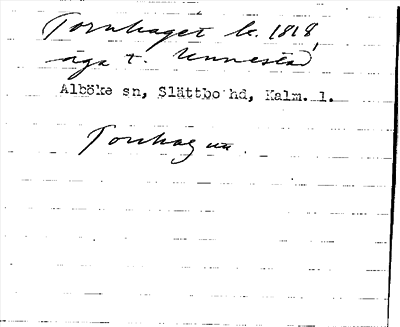 Tornhaget k. 1818,
äga t. Unnestad,
Alböke sn, Slättbo hd, Kalm. l.
Tornhagun